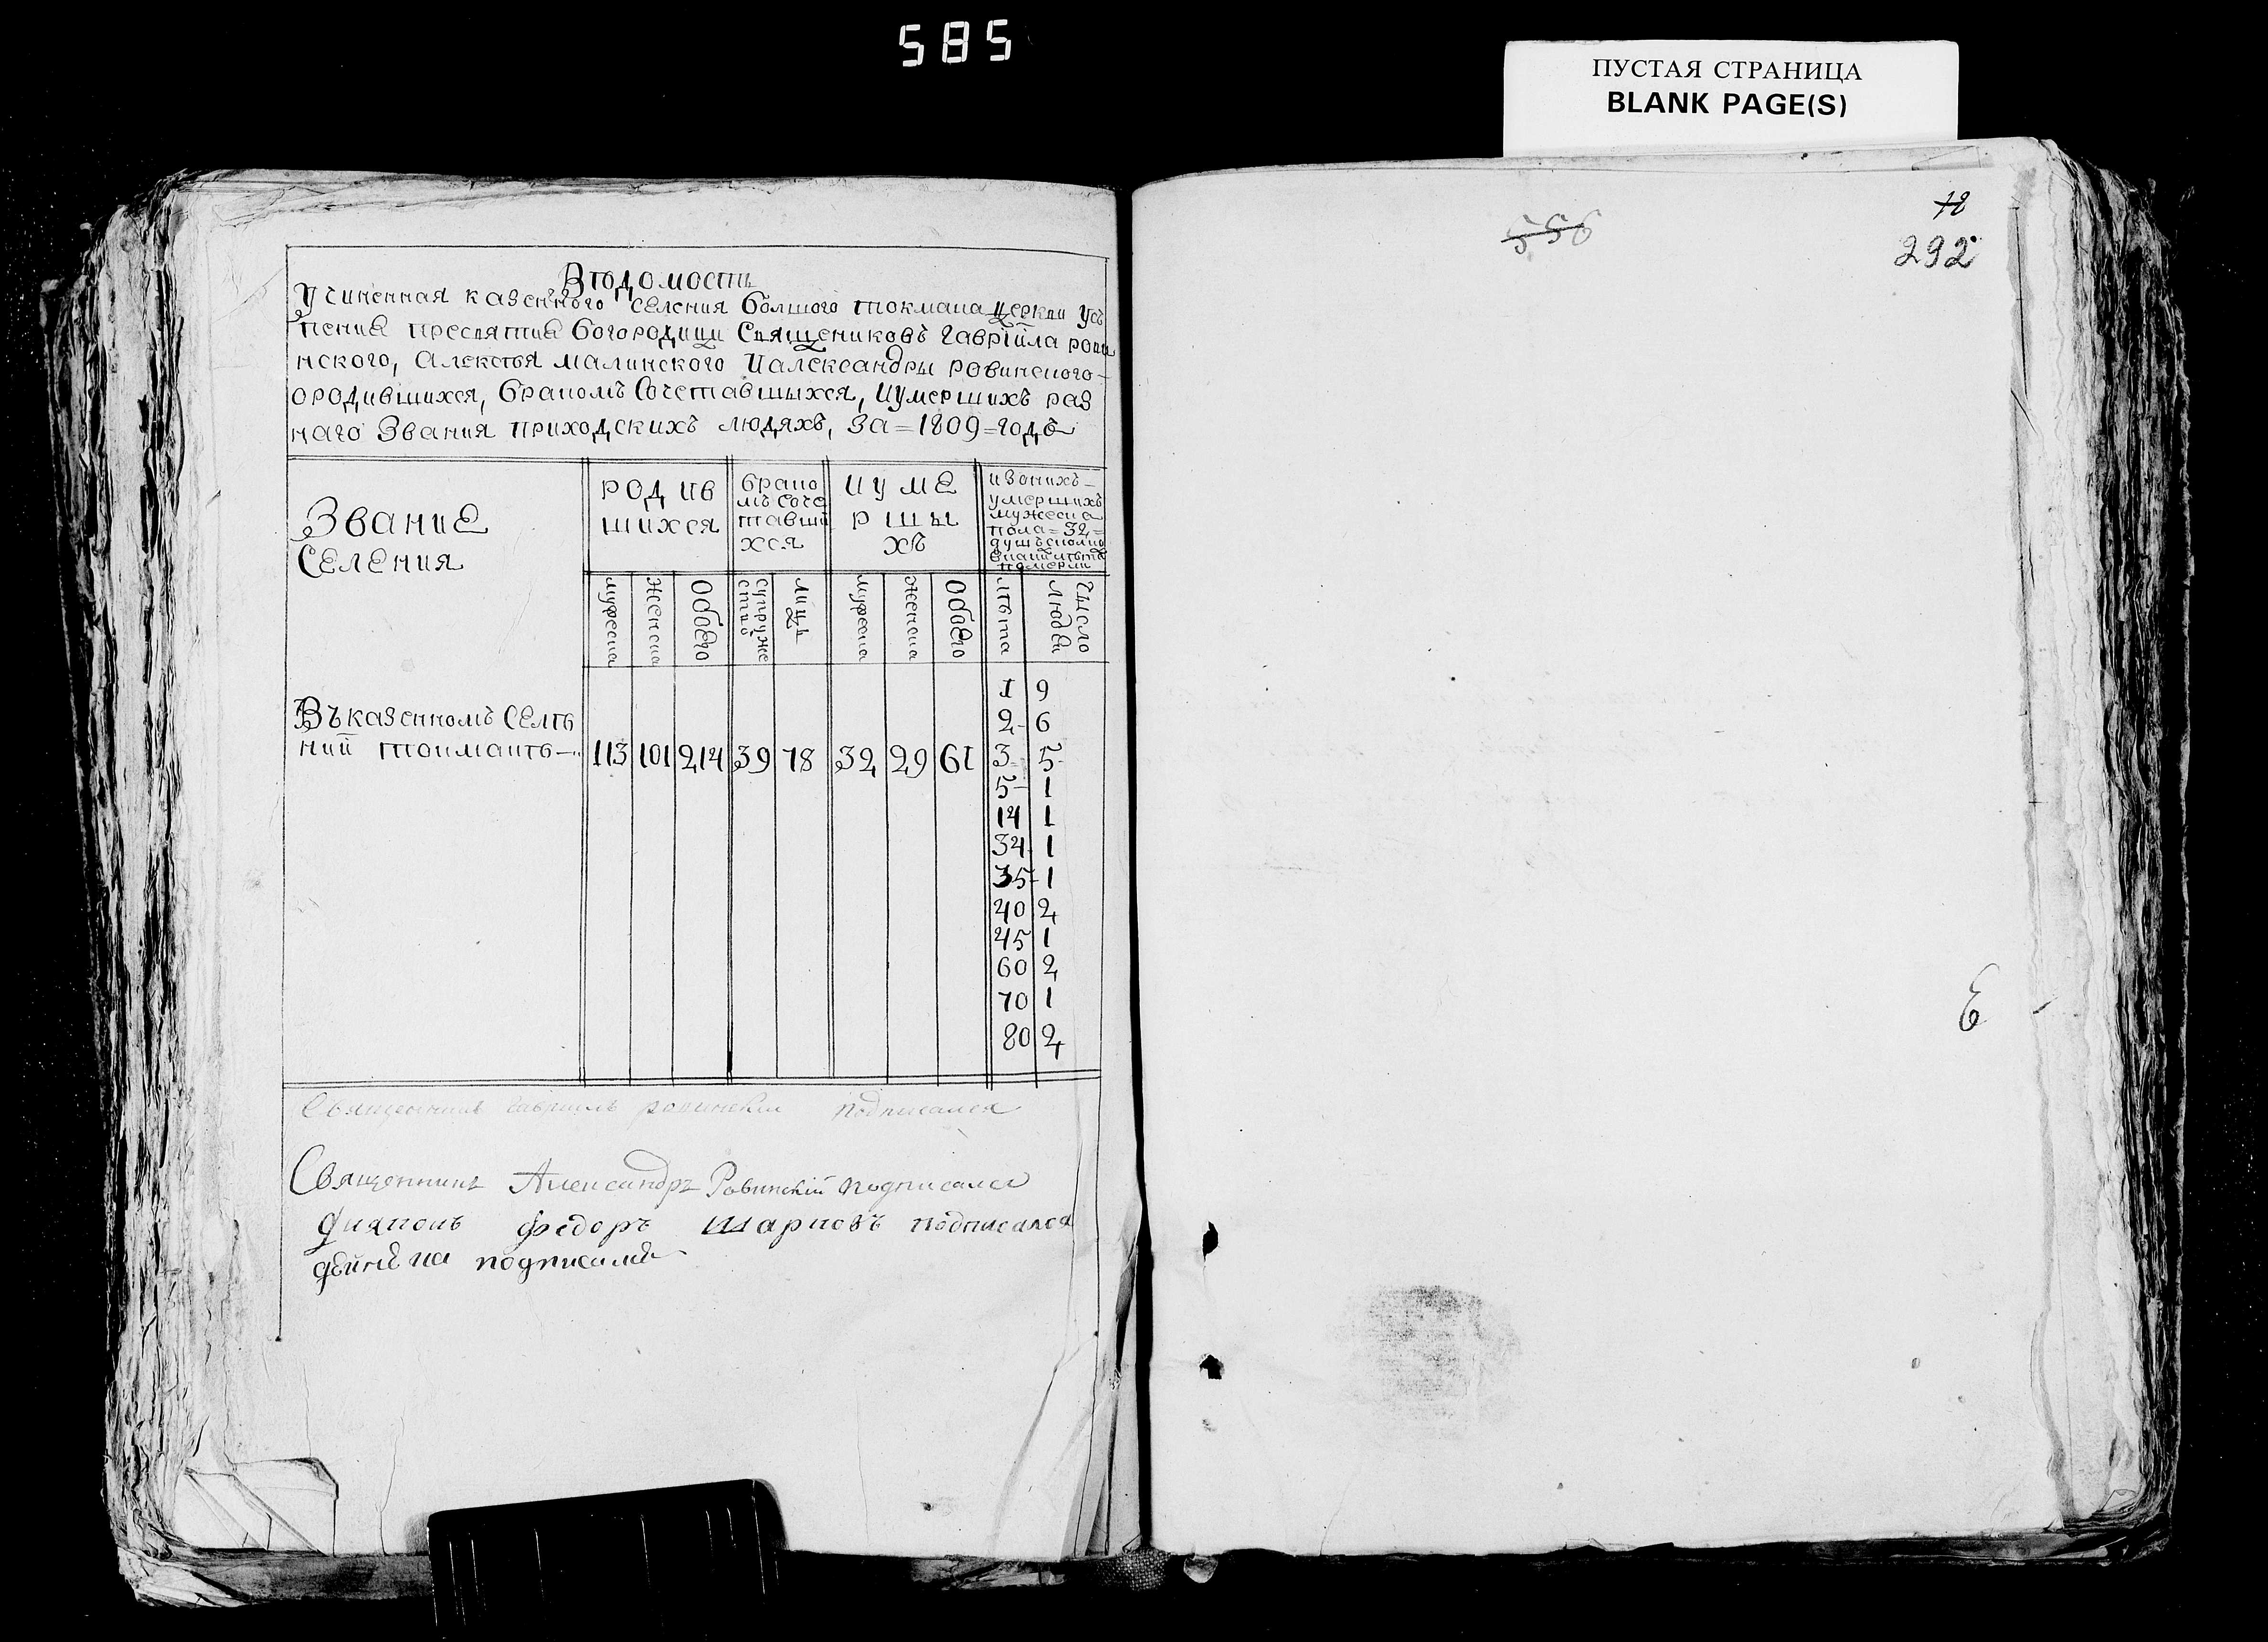 585
ПУСТАЯ СТРАНИЦА
BLANK PAGE(S)
Вѣдомость
Учиненная казенного селения болшого токмака церкви Усъ
пения пресвятия богородици Священиковъ Гаврїила рови
нского, Алексѣя малинского И александры ровинского
ородившихся, бракомъ Сочетавшыхся, Иумершихъ раз
наго Звания приходскихъ людяхъ, За=1809=годъ
Звание
Селения
родив
шихся
брако
мъ соче
тавши
хся
иуме
ршы
хъ
изонихъ
умершихъ
мужеска
пола=32=
душъ
померли
мужеска
женска
Обоего
супруже
ство
лицъ
мужеска
женска
Обоего
лѣта
число
людей
Въказенномъ Селѣ
нии токмакѣ
113 101 214 39 78 32 29 61
1 9
2 6
3 5
5 1
14 1
34 1
35 1
40 2
45 1
60 2
70 1
80 2
Священникъ Гавриилъ ровинский подписался
Священникъ Александръ Ровинскїй подписался
Дияконъ федоръ Шарковъ подписался
подписался
556
12
292